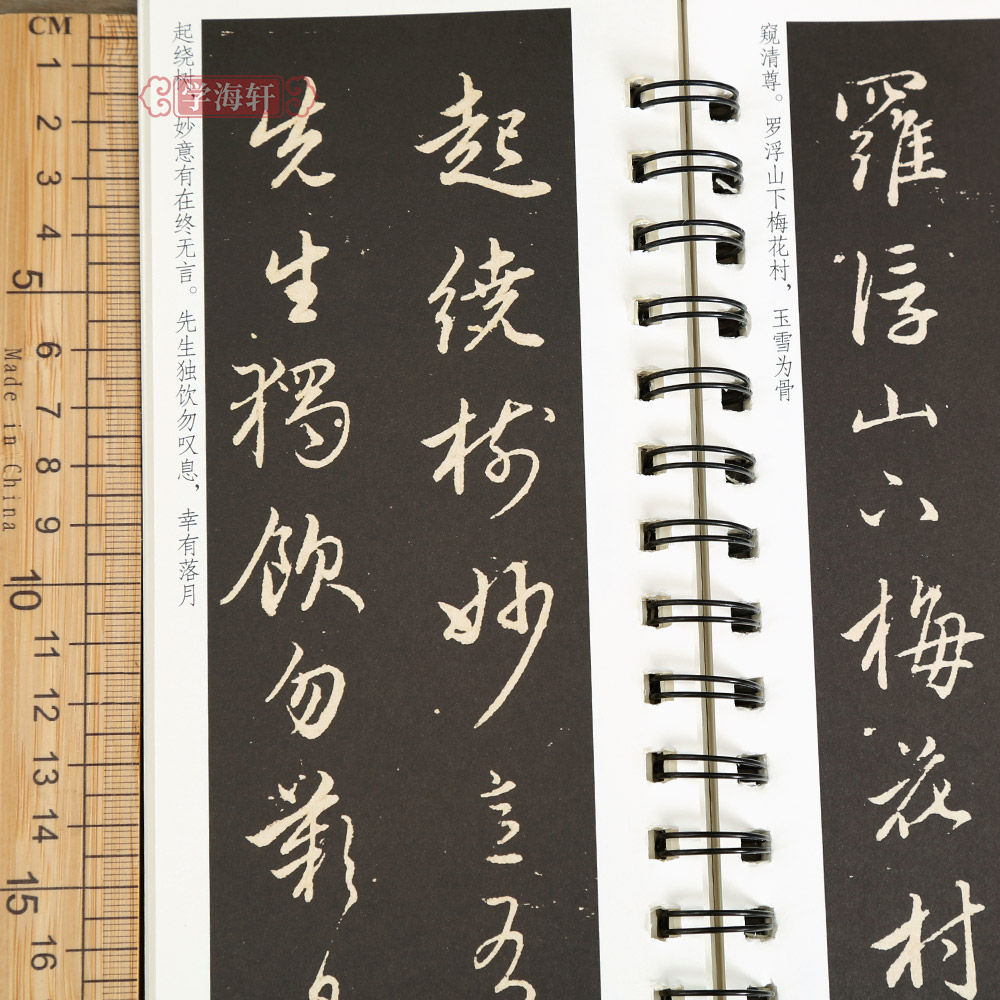 羅浮山下梅花村
窥清尊。罗浮山下梅花村，玉雪为骨
起繞樹妙意有
先生獨飲勿歎
起绕树，妙意有在终无言。先生独饮勿叹息，幸有落月
学海轩
CM
1
2
3
4
5
6
7
8
9
10
11
12
13
14
15
16
Made in China